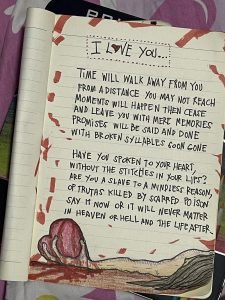 I LOVE YOU...
TIME WILL WALK AWAY FROM YOU
FROM A DISTANCE YOU MAY NOT REACH
MOMENTS WILL HAPPEN THEN CEASE
AND LEAVE YOU WITH MERE MEMORIES
PROMISES WILL BE SAID AND DONE
WITH BROKEN SYLLABLES SOON GONE
HAVE YOU SPOKEN TO YOUR HEART,
WITHOUT THE STITCHES IN YOUR LIPS?
ARE YOU A SLAVE TO A MINDLESS REASON,
OF TRUTHS KILLED BY SCARRED POISON
SAY IT NOW OR IT WILL NEVER MATTER
IN HEAVEN OR HELL AND THE LIFE AFTER.